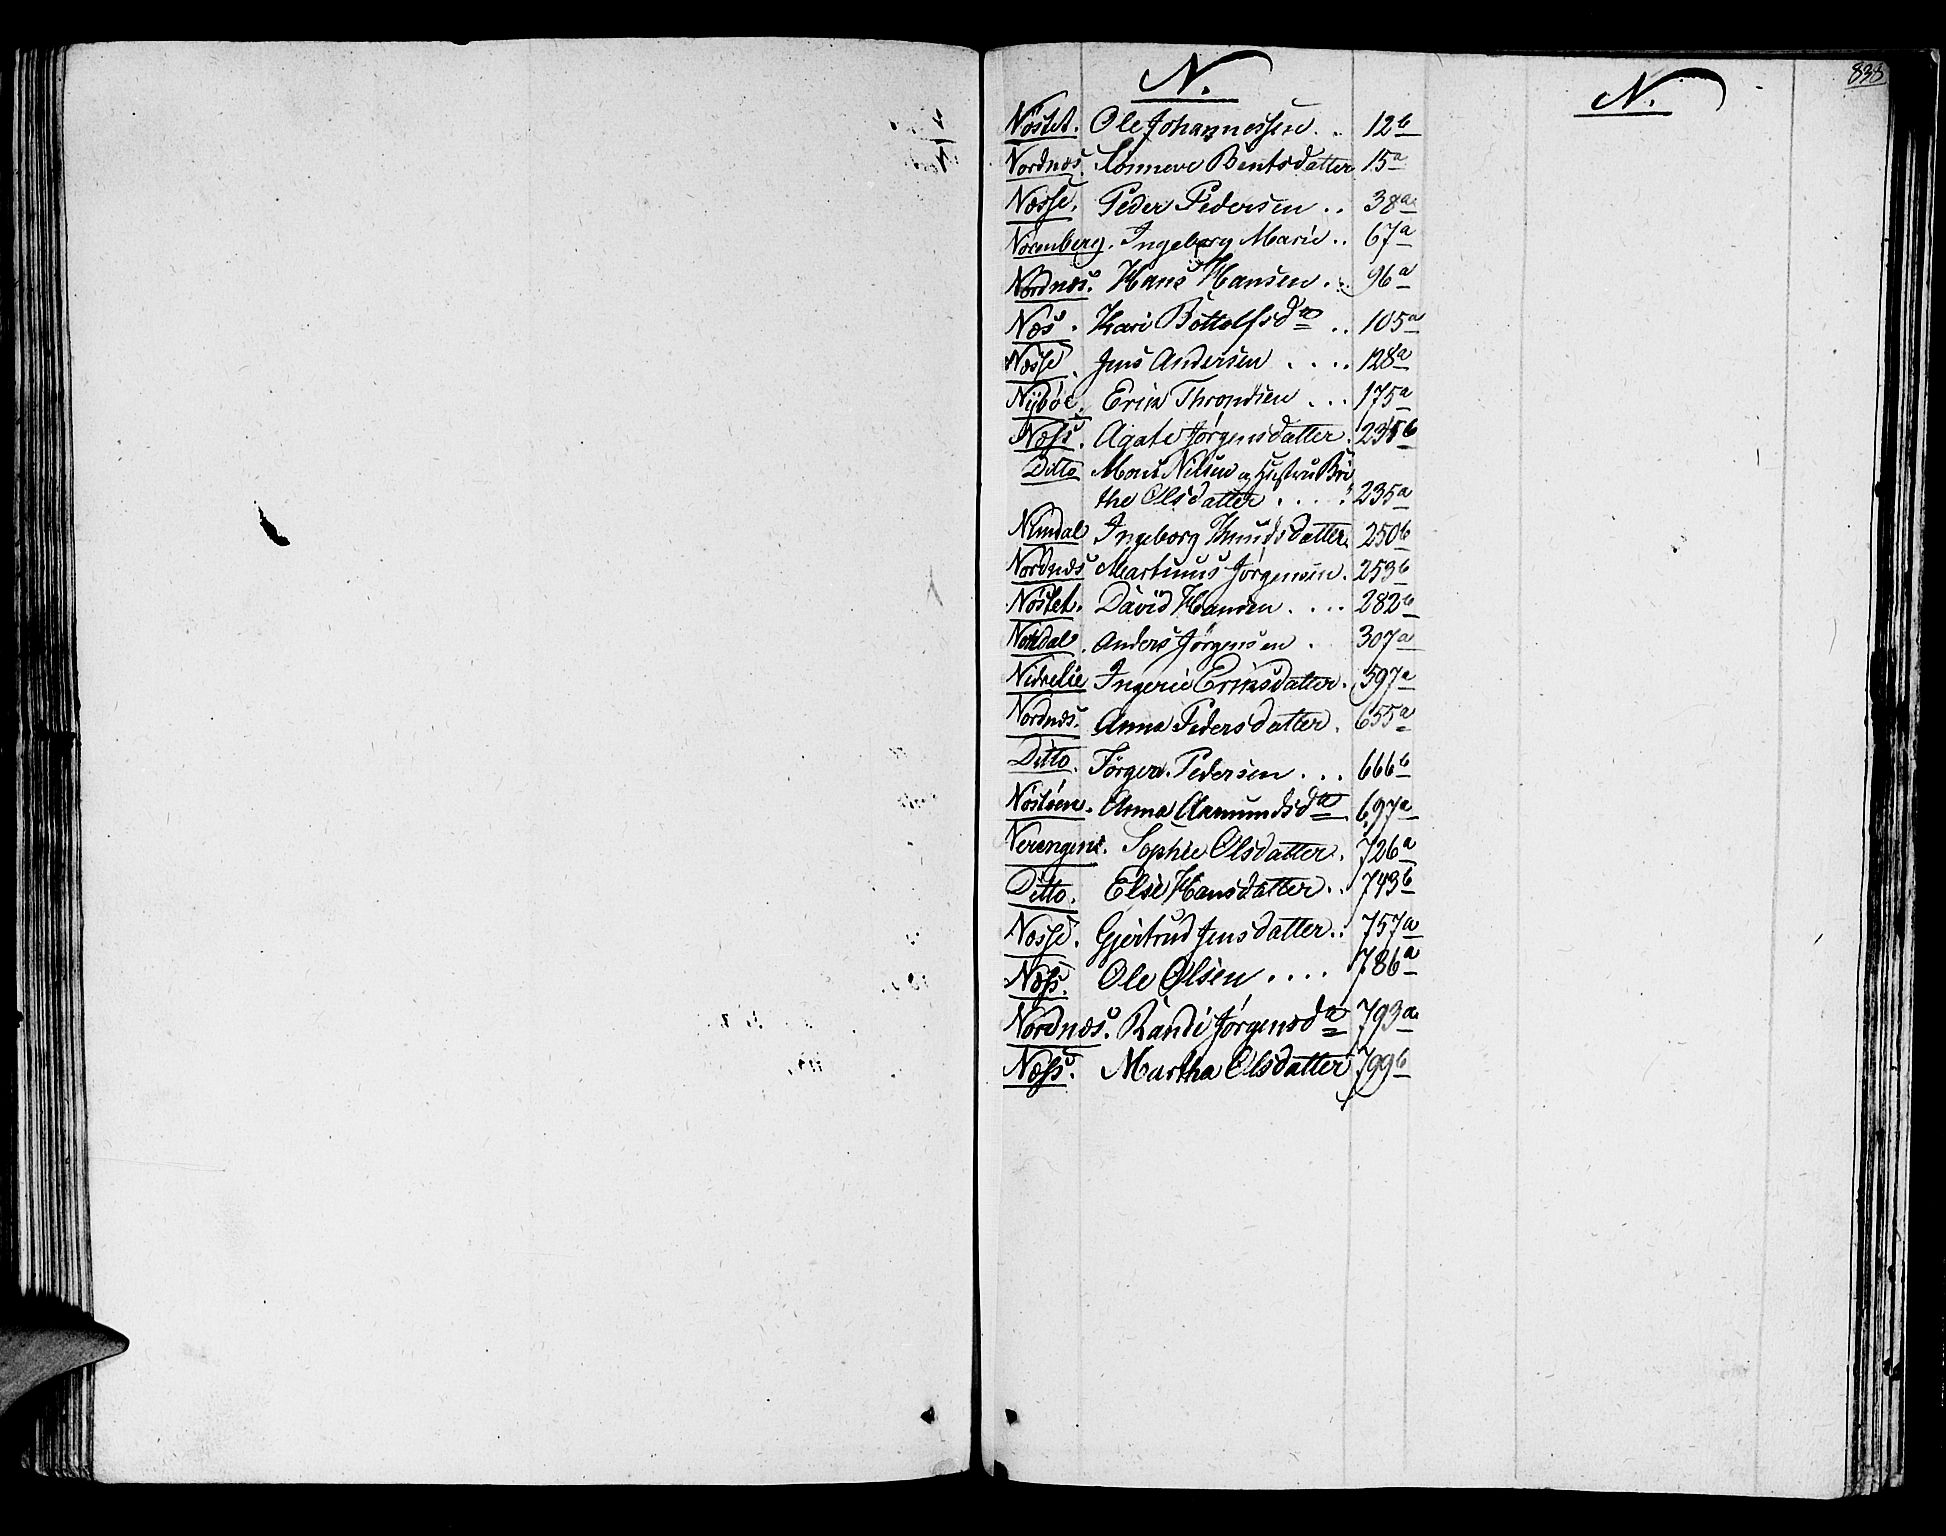 838
N.
N.
Nöstet. Ole Johannessen. .. 12b
Nordnæs. Sönneve Bentsdatter 15a
Næsse. Peder Pedersen .. 38a
Norenberg. Ingeborg Marie .. 67a
Nordnæs. Hans Hansen ... 96a
Næs. Kari Bottolfsdr .. 105a
Næsse. Jens Andersen .... 128a
Nÿböe. Erick Throndsen ... 175a
Næss. Agate Jörgensdatter.
Ditto Mons Nilsen og Hustru Bri
the Olsdatter .... 235a
Nundal Ingeborg Knudsdatter. 250b
Nordnæs Martinus Jörgensen. 253b
Nöstet. David Hansen .... 282b
Norddal. Anders Jörgensen . 307a
Nidrelie Ingerie Ericksdatter. 597a
Nordnæs. Anna Pedersdatter. 655a
Ditto. Jörgen Pedersen ... 666b
Nöstöen. Anna Aamundsdr 697a
Nerengene. Sophie Olsdatter. 726a
Ditto. Else Hansdatter .. 743b
Næsse. Gjertrud Jensdatter .. 757a
Næss. Ole Olsen .... 786a
Nordnæs. Randi Jörgensdr 793a
Næss. Martha Olsdatter 799b